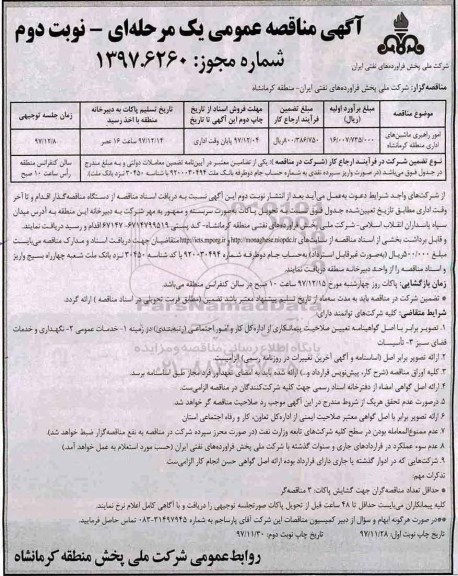 آگهی مناقصه عمومی یک مرحله‌ای – نوبت دوم
شماره مجوز: ۱۳۹۷.۶۲۶۰
شرکت ملی پخش فرآورده‌های نفتی ایران
مناقصه‌گزار: شرکت ملی پخش فرآورده‌های نفتی ایران- منطقه کرمانشاه
موضوع مناقصه
مبلغ برآورد اولیه (ریال)
مبلغ تضمین فرآیند ارجاع کار
مهلت فروش اسناد از تاریخ چاپ دوم این آگهی تا تاریخ
تاریخ تسلیم پاکات به دبیرخانه منطقه با اخذ رسید
زمان جلسه توجیهی
امور راهبری ماشین‌های اداری منطقه کرمانشاه
۱۶/۰۰۷/۷۳۵/۰۰۰
۹۷/۱۲/۰۴ پایان وقت اداری
۹۷/۱۲/۱۴ ساعت ۱۶ عصر
۹۷/۱۲/۸
سالن کنفرانس منطقه
رأس ساعت ۱۰ صبح
نوع تضمین شرکت در فرآیند ارجاع کار (شرکت در مناقصه): یکی از تضامین معتبر در آیین‌نامه تضمین معاملات دولتی و به مبلغ مندرج
در جدول فوق می‌باشد (در صورت واریز سپرده نقدی به شماره حساب جام دوطرفه بانک ملت ۹۲۰۰۰۳۰۴۹۴ با شناسه ۲۰۴۵۰ نزد بانک ملت).
از شرکت‌های واجد شرایط دعوت به‌عمل می‌آید بعد از انتشار نوبت دوم این آگهی نسبت به دریافت اسناد مناقصه از دستگاه مناقصه‌گذار اقدام و تا آخر
وقت اداری مطابق تاریخ تعیین‌شده جدول فوق نسبت به تحویل پاکات به‌صورت سربسته و ممهور به مهر شرکت به دبیرخانه این منطقه به آدرس میدان
سپاه پاسداران انقلاب اسلامی- شرکت ملی پخش فرآورده‌های نفتی منطقه کرمانشاه- کد پستی ۶۷۱۴۷۹۴۵۱۹ ۶۷۱۴۷ اقدام و رسید دریافت نمایند.
زمان بازگشایی: پاکات روز چهارشنبه مورخ ۹۷/۱۲/۱۵ ساعت ۱۰ صبح در سالن کنفرانس منطقه می‌باشد
* تضمین شرکت در مناقصه باید به مدت سه‌ماه از تاریخ تسلیم پیشنهاد معتبر باشد تضمین (مطابق فرمت تحویلی در اسناد مناقصه) ارائه گردد.
شرایط متقاضی: کلیه شرکت‌های توانمند دارای:
۱. تصویر برابر با اصل گواهینامه تعیین صلاحیت پیمانکاری از اداره‌کل کار و امور اجتماعی (رتبه‌بندی) در زمینه ۱- خدمات عمومی ۲- نگهداری و خدمات
فضای سبز ۳- تأسیسات
۲. ارائه تصویر برابر اصل (اساسنامه و آگهی آخرین تغییرات در روزنامه رسمی) الزامیست.
۳. کلیه اوراق مناقصه (شرح کار، پیش‌نویس قرارداد و...) ارائه شده باید به امضای تعهدآور فرد مجاز طبق اساسنامه برسد.
۴. ارائه اصل گواهی امضاء از دفترخانه اسناد رسمی جهت کلیه شرکت‌کنندگان در مناقصه الزامی‌ست.
۵. درصورت عدم تحقق هریک از شروط مندرج در این آگهی موجب رد صلاحیت مناقصه گر خواهد شد.
۶. ارائه تصویر برابر با اصل گواهی معتبر صلاحیت ایمنی از اداره‌کل تعاون، کار و رفاه اجتماعی استان
۷. عدم ممنوع‌المعامله بودن در سطح کلیه شرکت‌های تابعه وزارت نفت (در صورت محرز سپرده شرکت در مناقصه به نفع مناقصه‌گزار ضبط خواهد شد).
۸. عدم سوء عملکرد در قراردادهای جاری و سنوات گذشته با شرکت ملی پخش فرآورده‌های نفتی ایران (حسب مورد استعلام به عمل خواهد آمد).
۹. شرکت‌هایی که در ادوار گذشته یا جاری دارای قرارداد بوده ارائه اصل گواهی حسن انجام کار الزامی‌ست
تذکرات مهم:
* حداقل تعداد مناقصه‌گران جهت گشایش پاکات: ۳ مناقصه‌گر
کلیه پیمانکاران می‌بایست حداقل تا ۴۸ ساعت قبل از تحویل پاکات صورتجلسه توجیهی را دریافت و با آگاهی کامل اعلام نرخ نمایند.
** در صورت هرگونه ابهام و سؤال از دبیر کمیسیون مناقصات این شرکت آقای پارساجم به شماره ۳۱۴۹۷۹۴۵-۰۸۳ تماس حاصل فرمایید.
تاریخ چاپ نوبت اول: ۹۷/۱۱/۲۸ تاریخ چاپ نوبت دوم: ۹۷/۱۱/۳۰
روابط عمومی شرکت ملی پخش منطقه کرمانشاه